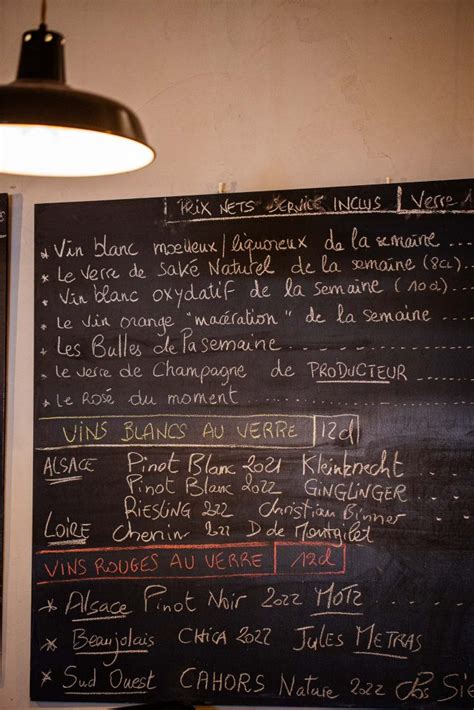 PRIX NETS SERVICE INCLUS | Verre
* Vin blanc moelleux / liquoreux de la semaine ...
* Le verre de Saké Naturel de la semaine (8cl) ...
* Vin blanc oxydatif de la semaine (10cl) ...
* Le vin orange "macération" de la semaine ......
* Les Bulles de la semaine ..........
* Le verre de Champagne de PRODUCTEUR ......
* Le Rosé du moment ..........
VINS BLANCS AU VERRE | 12cl
ALSACE Pinot Blanc 2021 Kleinknecht ...
Pinot Blanc 2022 GINGLINGER ...
RIESLING 222 Christian Binner ...
LOIRE Chenin 222 D de Montgilet
VINS ROUGES AU VERRE | 12cl
* Alsace Pinot Noir 2022 MOTZ .....
* Beaujolais CHICA 2022 JULES METRAS
* Sud Ouest CAHORS Nature 2022